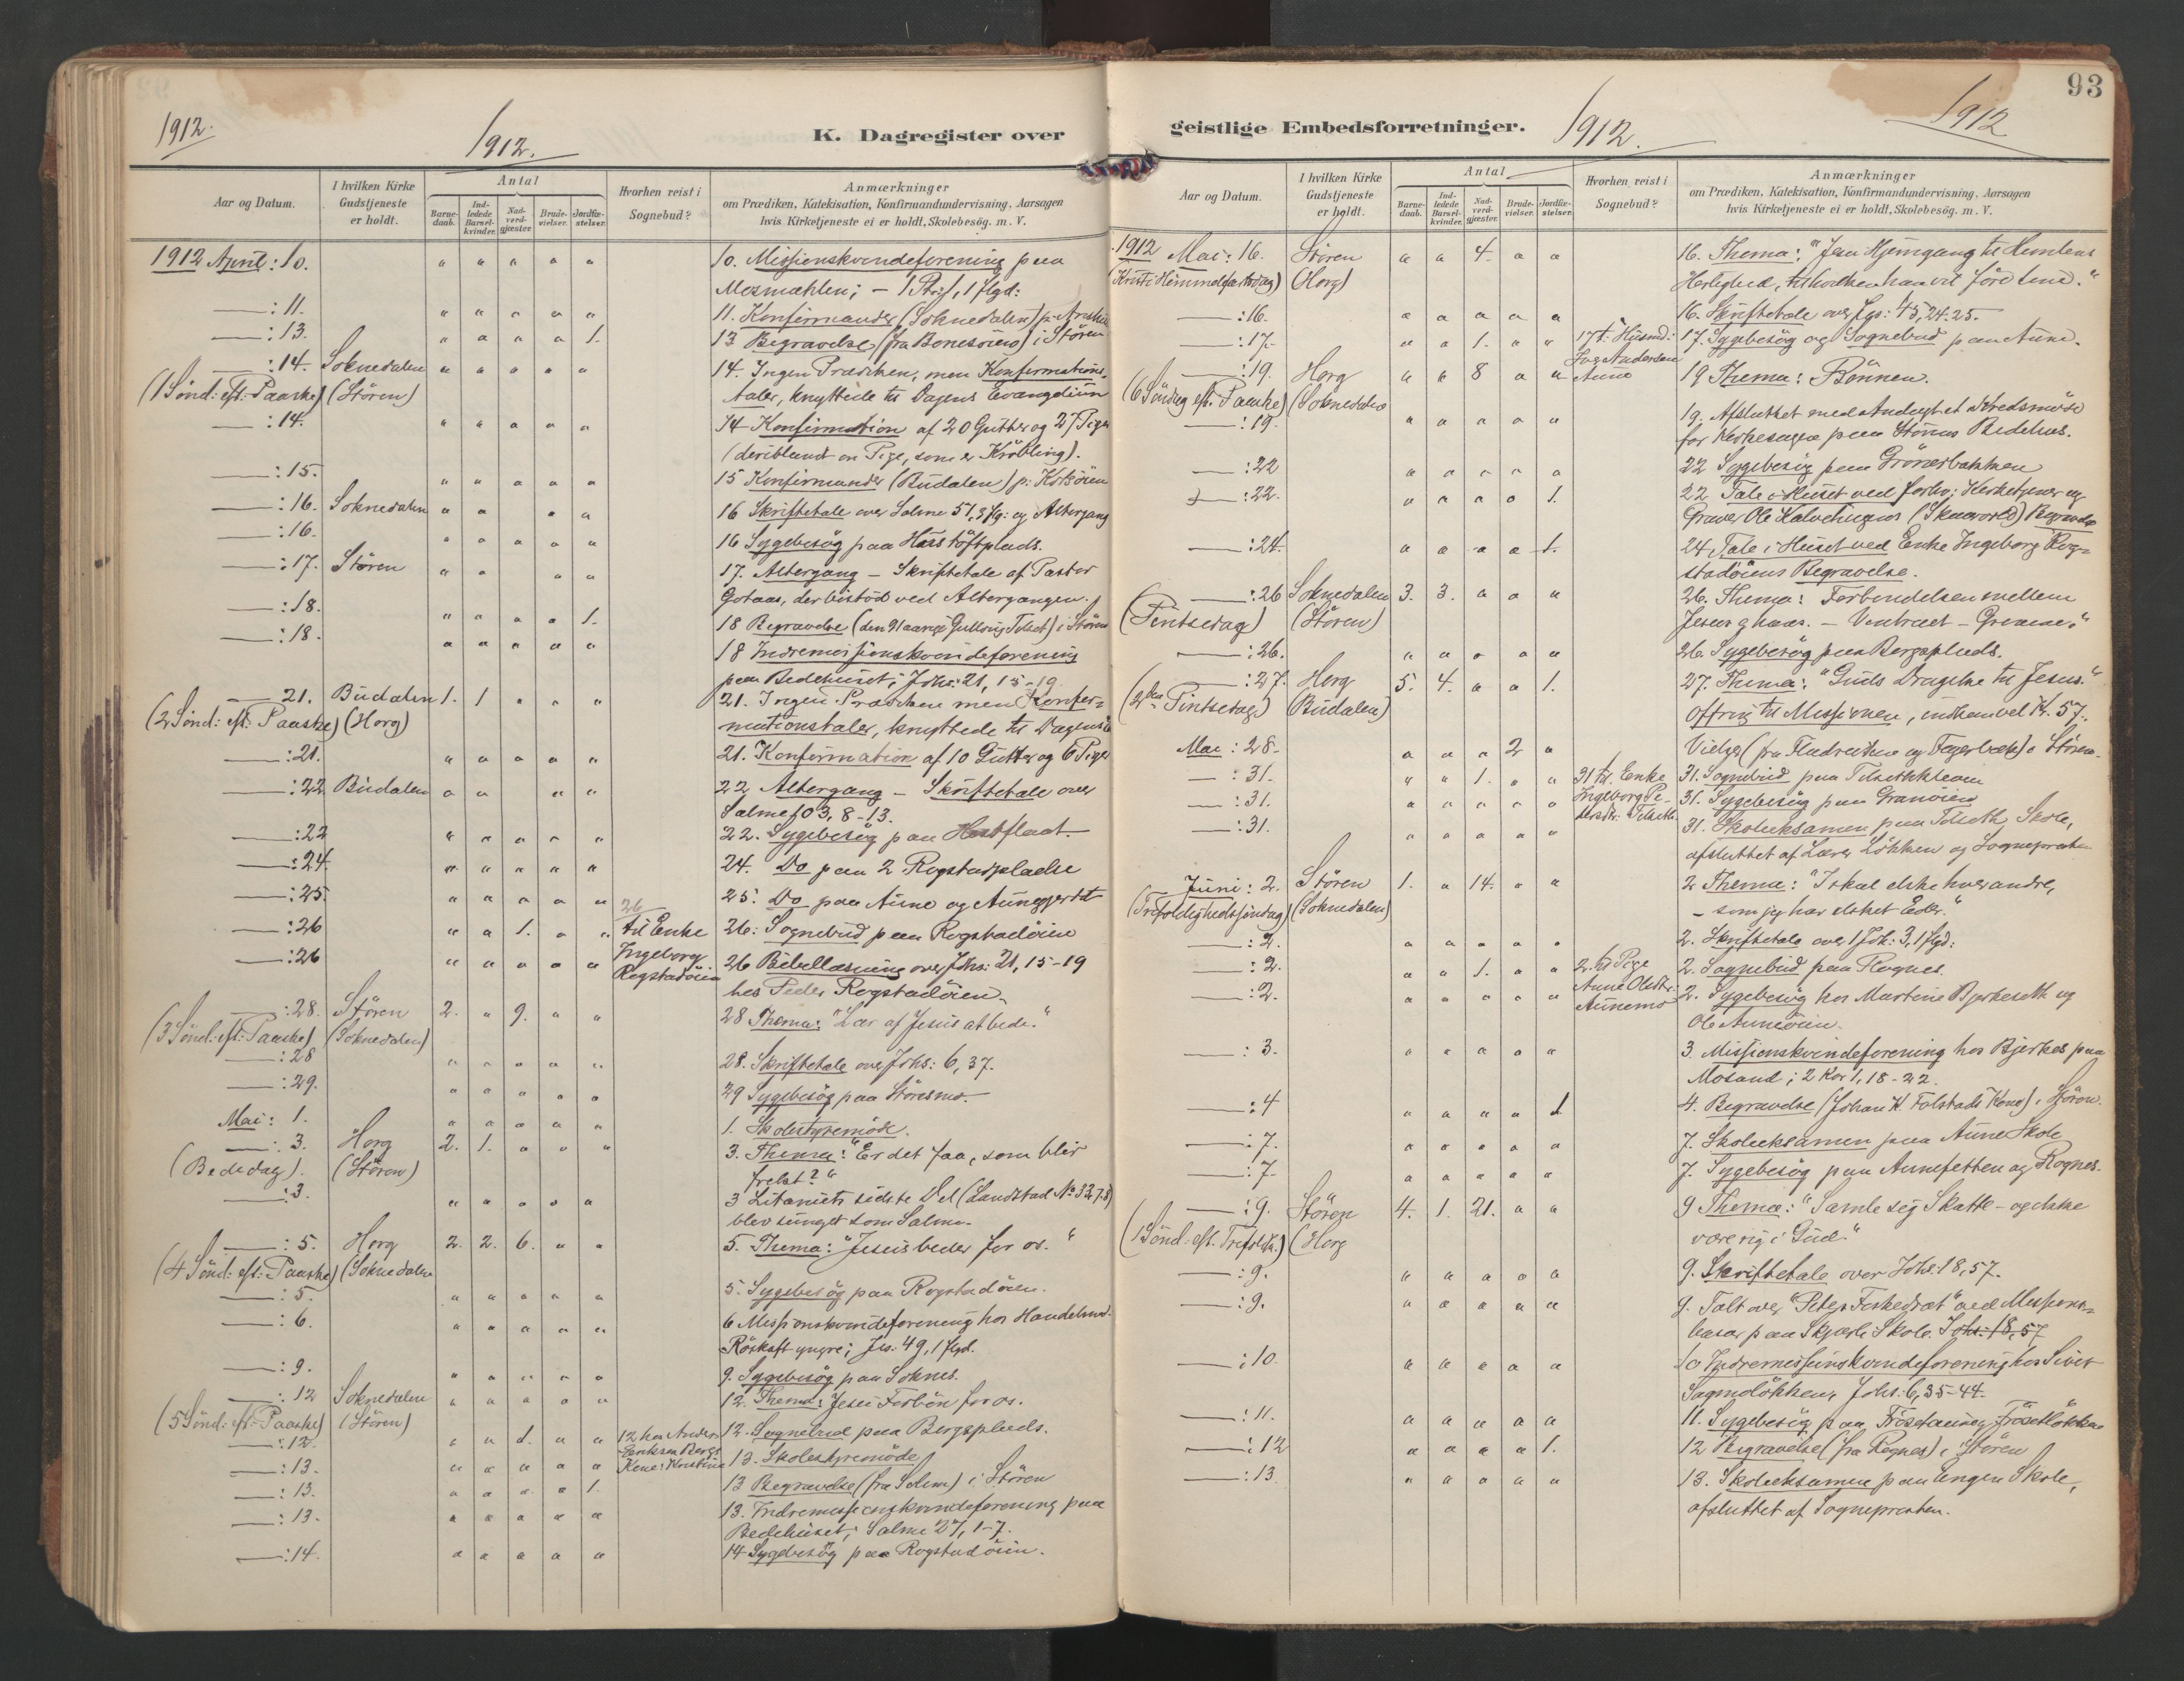 1912.
1912.
K. Dagregister over
Aar og Datum.
I hvilken Kirke Gudstjeneste er holdt.
Antal
Barne-daab.
Ind-ledede Barsel-kvinder.
Nad-verd-gjæster.
Brude-vielser.
Jordfæ-stelser.
Hvorhen reist i Sognebud?
Anmærkninger
om Prædiken, Katekisation, Konfirmandundervisning, Aarsagen
hvis Kirketjeneste ei er holdt, Skolebesøg. m. V.
1912 April: 10. " " " " " 10. Missionskvindeforening paa
— 1 Flgd:
—: 11. " " " " " 11. Konfirmander (Soknedalen)
—: 13. " " " " 1. 13 Begravelse i Støren
—: 14. Soknedalen " " " " " 14. Ingen Prædiken, men Konfirmations-
(1 Sønd: eft: Paaske) (Støren) taler, knyttede til Dagens Evangelium
—: 14. " " " " " 14 Konfirmation af 20 Gutter og 27 Piger
(deriblandt en Pige, som er Krøbling).
—: 15. " " " " " 15 Konfirmander (Budalen) p:
—: 16. Soknedalen " " " " 16 Skriftetale over Salme 51, og Altergang
—: 16. " " " " " 16 Sygebesøg paa
—: 17. Støren " " " " 17. Altergang – Skriftetale af Pastor
Gotaas, der bistod ved Altergangen.
—: 18. " " " " 1. 18 Begravelse (den 91 aarige Gullaug Telset) i Støren
—: 18. " " " " " 18 Indremissionskvindeforening
paa Bedehuset; Johs: 21, 15-19.
— 21. Budalen 1. 1 " " " 21. Ingen Prædiken men Konfir-
(2 Sønd: eft: Paaske) (Horg) mationstaler, knyttede til Dagens
—: 21. " " " " " 21. Konfirmation af 10 Gutter og 6 Piger
—: 22 Budalen " " " " 22 Altergang – Skriftetale over
Salme 103, 8-13.
—: 22 " " " " " 22. Sygebesøg paa
—: 24. " " " " " 24. Do paa 2 Rogstadpladse
—: 25. " " " " " 25. Do paa Aune og Aunegjerdet
—: 26 " " 1. " " 26 til Enke Ingeborg Rogstadøien 26: Sognebud paa Rogstadøien
—: 26 " " " " " 26 Bibellæsning over Johs: 21, 15-19
hos Peder Rogstadøien.
—: 28. Støren 2. " 9. " " 28 Thema: "Lær af Jesus at bede."
(3 Sønd: eft: Paaske) (Soknedalen)
—: 28 " " " " " 28. Skriftetale over Johs: 6, 37.
—: 29. " " " " " 29 Sygebesøg paa Størensmo.
Mai: 1. " " " " " 1. Skolestyremøde.
—: 3. Horg 2. 1. " " " 3. Thema: "Er det faa, som blir
(Bededag). (Støren) frelst?"
—: 3. " " " " " 3 Litaniets sidste Del (Landstad No 327.8)
blev sunget som Salme.
—: 5. Horg 2. 2. 6. " " 5. Thema: "Jesus beder for os."
(4 Sønd: eft: Paaske) (Soknedalen
—: 5. " " " " " 5. Sygebesøg paa Rogstadøien.
—: 6. " " " " " 6 Missionskvindeforening hos Handelsmd.
Røskaft yngre; Jes. 49, 1 flgd.
—: 9. " " " " " 9. Sygebesøg paa Soknes.
—: 12 Soknedalen " " " " " 12. Thema: Jesu Forbøn for os.
(5 Sønd: eft: Paaske) (Støren)
—: 12. " " 1. " " 12 hos Anders Eriksen Bergs Kone: Kristine 12. Sognebud paa Bergsplads.
—: 13. " " " " " 13. Skolestyremøde
—: 13. " " " " 1. 13 Begravelse i Støren
—: 13. " " " " " 13. Indremissionskvindeforening paa
Bedehuset; Salme 27, 1-7.
—: 14. " " " " " 14 Sygebesøg paa Rogstadøien.
93
1912
1912.
geistlige Embedsforretninger.
Aar og Datum.
I hvilken Kirke Gudstjeneste er holdt.
Antal
Barne-daab.
Ind-ledede Barsel-kvinder.
Nad-verd-gjæster.
Brude-vielser.
Jordfæ-stelser.
Hvorhen reist i Sognebud?
Anmærkninger
om Prædiken, Katekisation, Konfirmandundervisning, Aarsagen
hvis Kirketjeneste ei er holdt, Skolebesøg. m. V.
1912 Mai: 16. Støren " " 4. " " 16. Thema: "Jesu Hjemgang til Himlens
(Kristi Himmelfartsdag) (Horg) Herlighed, til hvilken han vil føre sine."
—: 16. " " " " " 16. Skriftetale over Jes: 45, 24. 25.
—: 17. " " 1. " " 17 t. Husmd: Andersen Aune 17. Sygebesøg og Sognebud paa Aune.
—: 19. Horg " " 8 " " 19 Thema: Bønnen.
(6 Søndag eft. Paaske) (Soknedalen
—: 19. " " " " " 19. Afsluttet med Andagt et Kredsmøde
for Kirkesagen paa Størens Bedehus.
—: 22 " " " " " 22 Sygebesøg paa Grønesbakken
—: 22. " " " " 1. 22 Tale i Huset ved forhv: Kirketjener og
Graver Ole Begravelse
—: 24. " " " " 1. 24 Tale i Huset ved Enke Ingeborg Rog-
stadøiens Begravelse.
—: 26 Soknedalen 3. 3. " " " 26. Thema: Forbindelsen mellem
(Pintsedag) (Støren) Jesus og hans. – Vintræet – Grenene."
—: 26. " " " " " 26. Sygebesøg paa Bergsplads.
—: 27. Horg 5. 4. " " 1. 27. Thema: "Guds Dragelse til Jesus."
(2den Pintsedag) (Budalen) Offring til Missionen, indkom vel Kr. 57.
Mai: 28. " " " 2 " Vielse i Støren.
—: 31. " " 1. " " 31 til Enke Ingeborg Pedersdtr: Telseth 31. Sognebud paa Telsethkleven
—: 31. " " " " " 31. Sygebesøg paa Granøien
—: 31. " " " " " 31. Skoleeksamen paa Telseth Skole,
afsluttet af Lærer Løkken og Sognepræsten
Juni: 2. Støren 1. " 14. " " 2 Thema: "I skal elske hverandre,
(Trefoldighedssøndag) (Soknedalen) – som jeg har elsket Eder."
—: 2. " " " " " 2. Skriftetale over 1 Joh: 3, 1 flgd:
—: 2. " " 1. " " 2. til Pige Anne Olsdtr: Aunemo 2. Sognebud paa Rognes.
—: 2. " " " " " 2. Sygebesøg hos Martine Bjerkeseth og
Ole Auneøien.
—: 3. " " " " " 3. Missionskvindeforening hos Bjerkes paa
Mosand; 2 Kor 1, 18-22.
—: 4 " " " " 1 4. Begravelse (Johan K. Folstads Kone) i Støren.
—: 7. " " " " " 7. Skoleeksamen paa Aune Skole
—: 7. " " " " " 7. Sygebesøg paa og Rognes.
—: 9. Støren 4. 1. 21. " " 9 Thema: "Samle sig Skatte – og ikke
(1 Sønd: eft. Trefoldh.) (Horg være rig i Gud."
—: 9. " " " " " 9. Skriftetale over Johs: 18, 57.
—: 9. " " " " " 9. Talt over "Peters Fiskedræt" ved Missions-
basar paa Skjærli Skole. Johs: 18, 57
—: 10. " " " " " 10 Indremissionskvindeforening hos Siver
Sagmoløkken; Johs: 6, 35-44.
—: 11. " " " " " 11. Sygebesøg paa Frøsetaune og Frøsetløkken
—: 12 " " " " 1. 12 Begravelse (fra Rognes) i Støren
—: 13. " " " " " 13. Skoleeksamen paa Engen Skole,
afsluttet af Sognepresten.